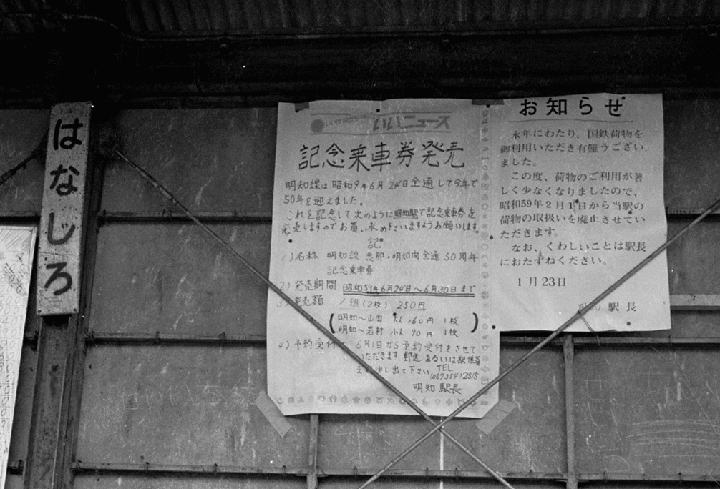 はなしろ
いいニュース
記念乗車券発売
明知線は昭和9年6月24日全通して今年で
50年を迎えました。
これを記念して次のように明知駅で記念乗車券を
発売しますのでお買い求め下さいますようお願いします。
記
1)名称 明知線 恵那・明知間全通50周年
記念乗車券
2)発売期間 昭和59年6月24日から6月30日まで
3)発売額 1組(2枚) 250円
明知〜山岡 大人160円 1枚
明知〜岩村 小人 90円 1枚
4)予約受付 6月1日から予約受付をさせて
いただきます
TEL
明知駅長
お知らせ
永年にわたり、国鉄荷物を
御利用いただき有難うござい
ました。
この度、荷物のご利用が著
しく少なくなりましたので、
昭和59年2月1日から当駅の
荷物の取扱いを廃止させてい
ただきます。
なお、くわしいことは駅長
におたずねください。
1月23日
駅長